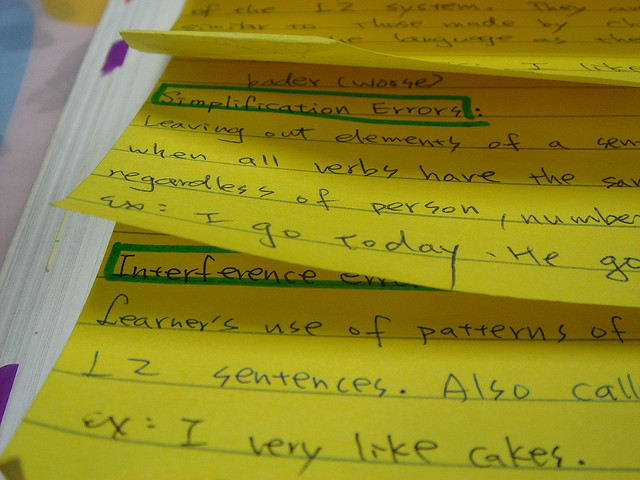 of the L2 system. They
similar to those made by
language as
I like
bader (worse)
Simplification Errors:
Leaving out elements of a sen
when all verbs have the sa
regardless of person, number
Ex: I go today. He go
Interference err
Learner's use of patterns of
L2 sentences. Also call
Ex: I very like cakes.